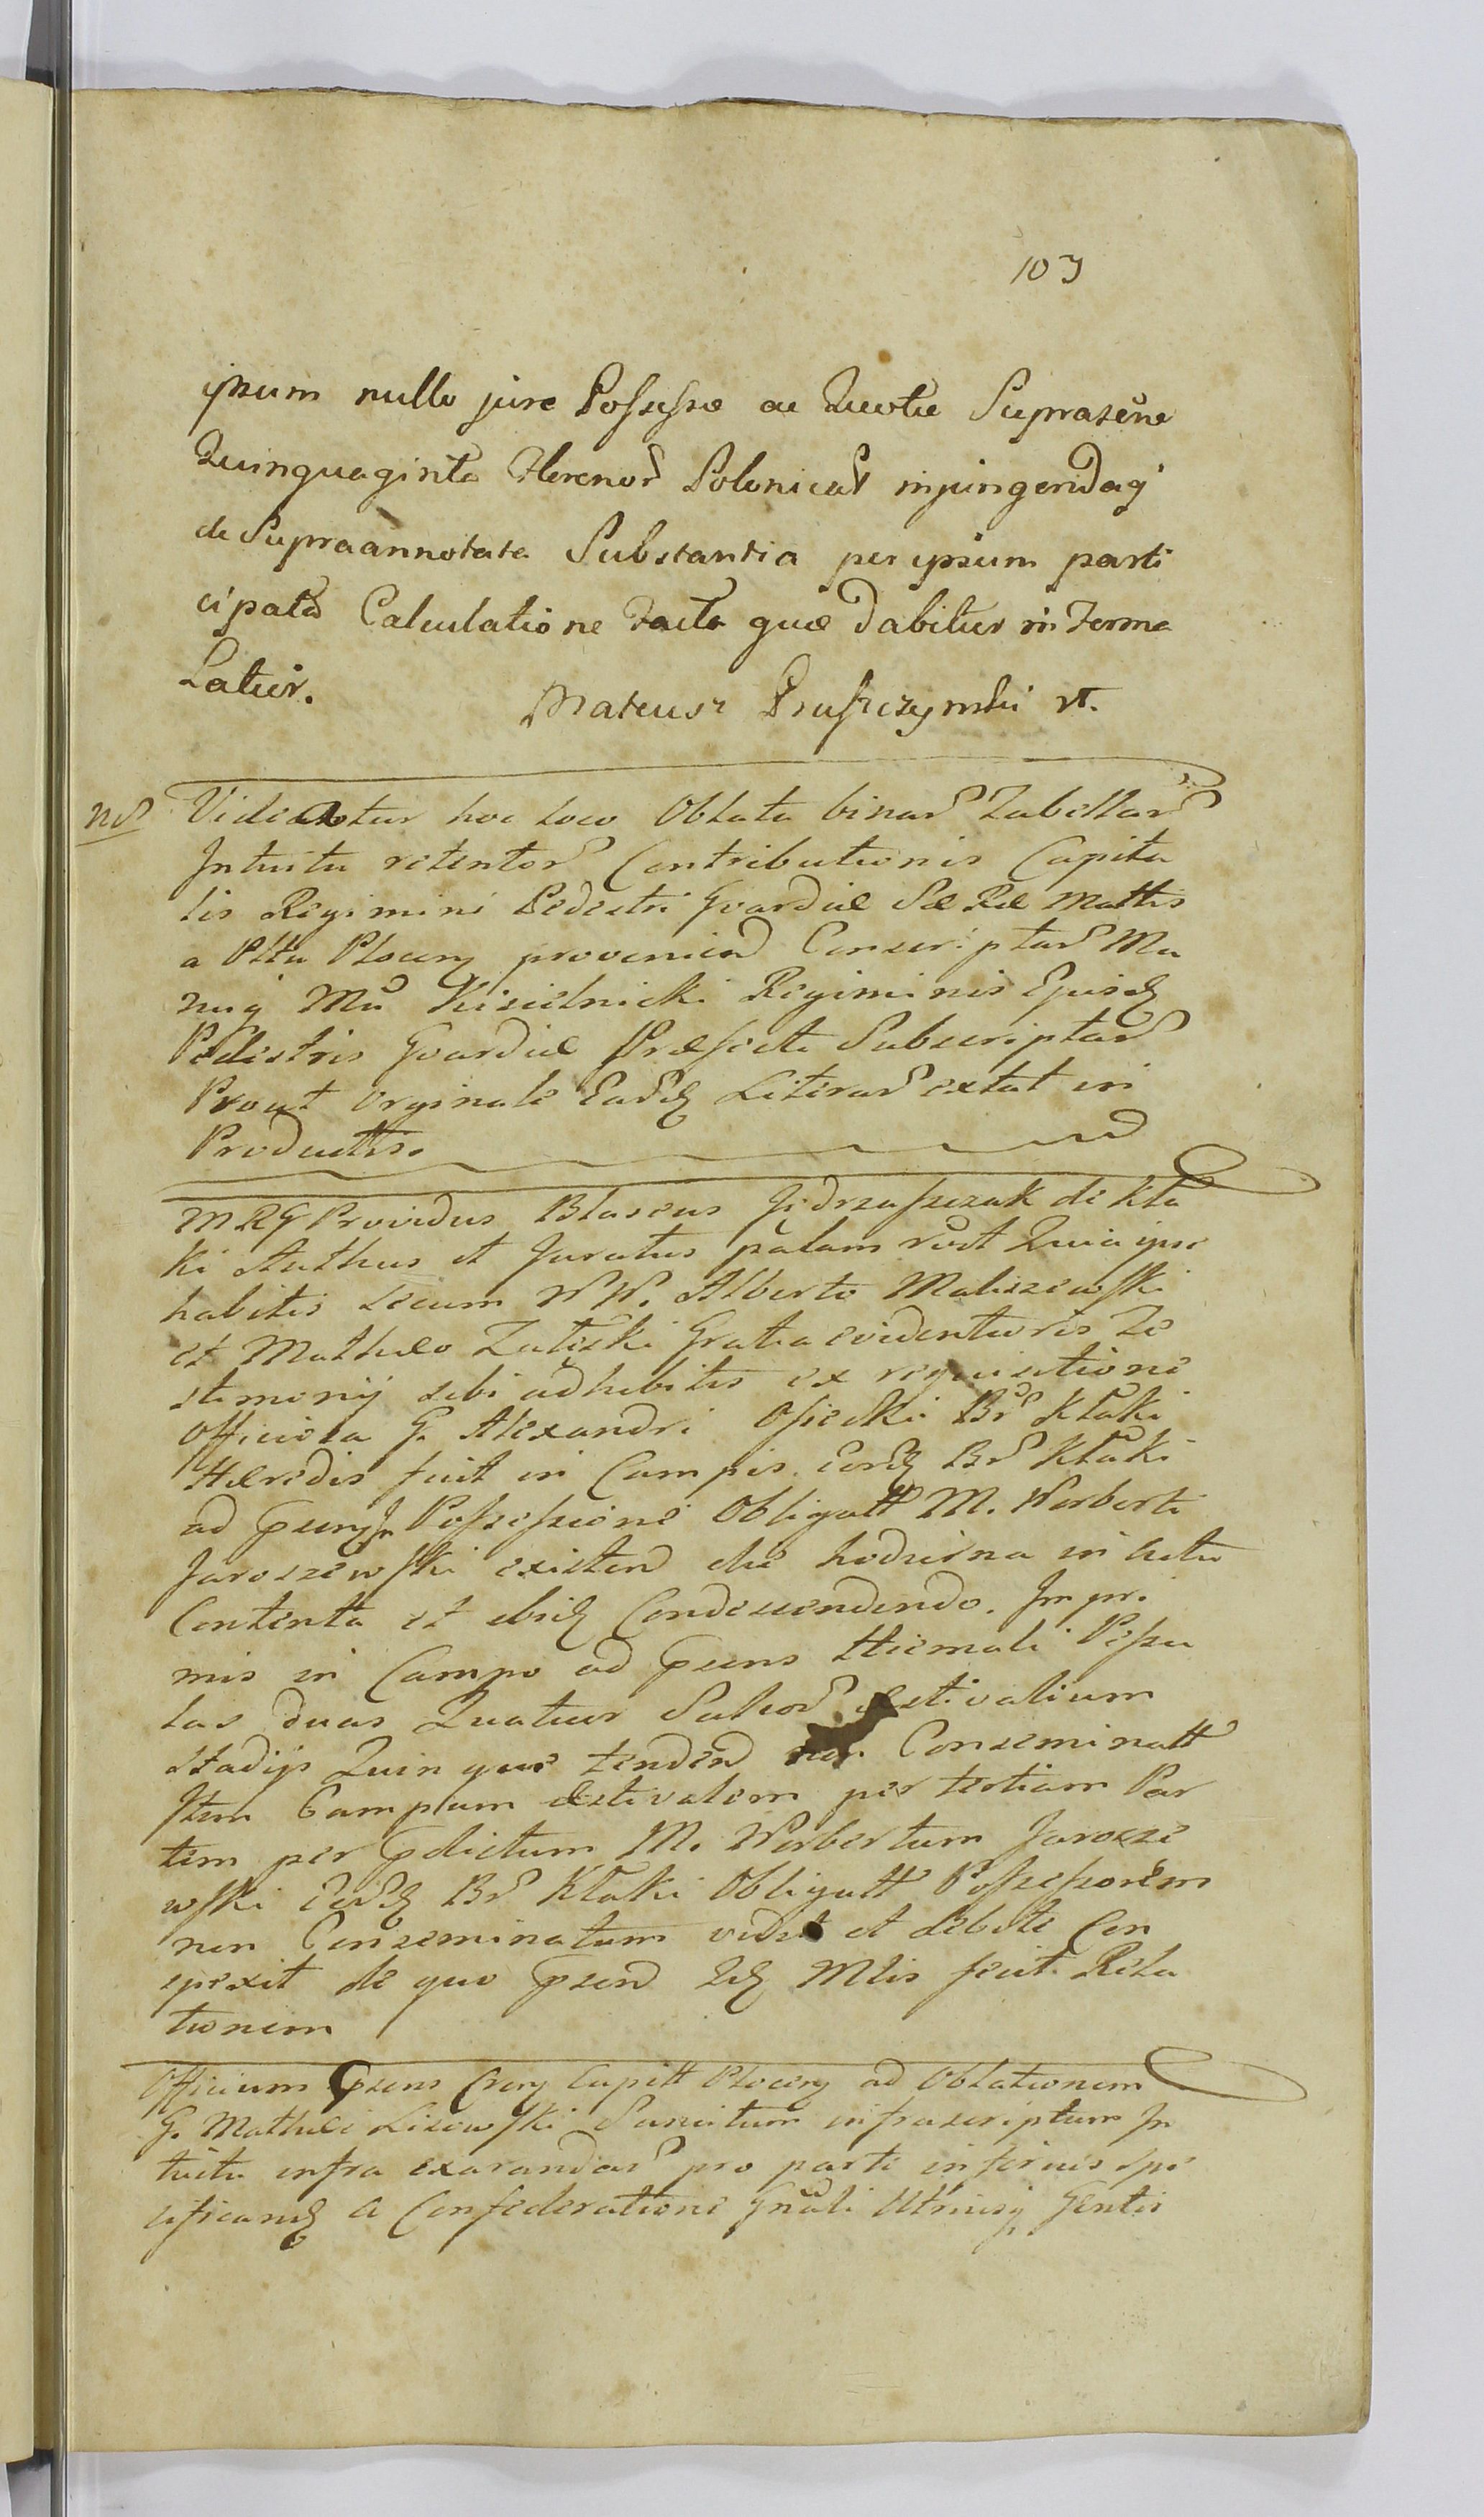 103
ipsum nullo jure Possessæ ac Quotæ Supratene
Quinquaginta Florenor Polonical injungendaq
de Supraannotata Substantia per ipsum parti
cipata Calculatione Facta quæ dabitur in Forma
Latior.
Mateusz Prusszczynski
Videatur hoc loco Oblata binar Tabellar
Intuitu retentor Contributionis Capita
lis Regimini Pedestri Gvardiæ Sæ Ræ Mattis
a Pttu Plocen provenien Conscriptar Ma
nuq Mci Kisielnicki Regiminis Ejusdq
Pedestris Gvardiæ Præfecti Subscriptar
Prout Orginale Eardq Literar extat in
Productis.
MRG Providus Blaseus Jędrzaszczak de Kła
ki Authus et Juratus palam rcvt Quia ipse
habitis secum NN. Alberto Maliszewski
et Matheo Zaleski Gratia evidentioris Te
stimonij sibi adhibitis ex requisitione
Officiosa G. Alexandri Osiecki Br Kłaki
Hæredis fuit in Campis eordq Br Kłaki
ad psens in Possessione Obligatt M. Norberti
Jaroszewski existen die hodierna in Actu
Contenta et ibidq Condescendendo. Inpri
mis in Campo ad psens Hiemali Pessu
las duas Quatuor Sulcor æstivalium
Stadijs Quinque tenden non Conseminatt
Item Campum æstivalem per tertiam Par
tem per pdictum M. Norbertum Jarosze
wski eordq Br Kłaki Obligatt Possessorem
non Conseminatum vidit et debite Con
spexit de quo psen Idq Mlis fecit Rela
tionem
Officium psens Cren Capitt Plocen ad Oblationem
G. Mathæi Lisowski Sancitum infrascriptum In
tuitu infra exarandar pro parte inferius spe
cificandq a Confederatione Gnali Utriusq Gentis